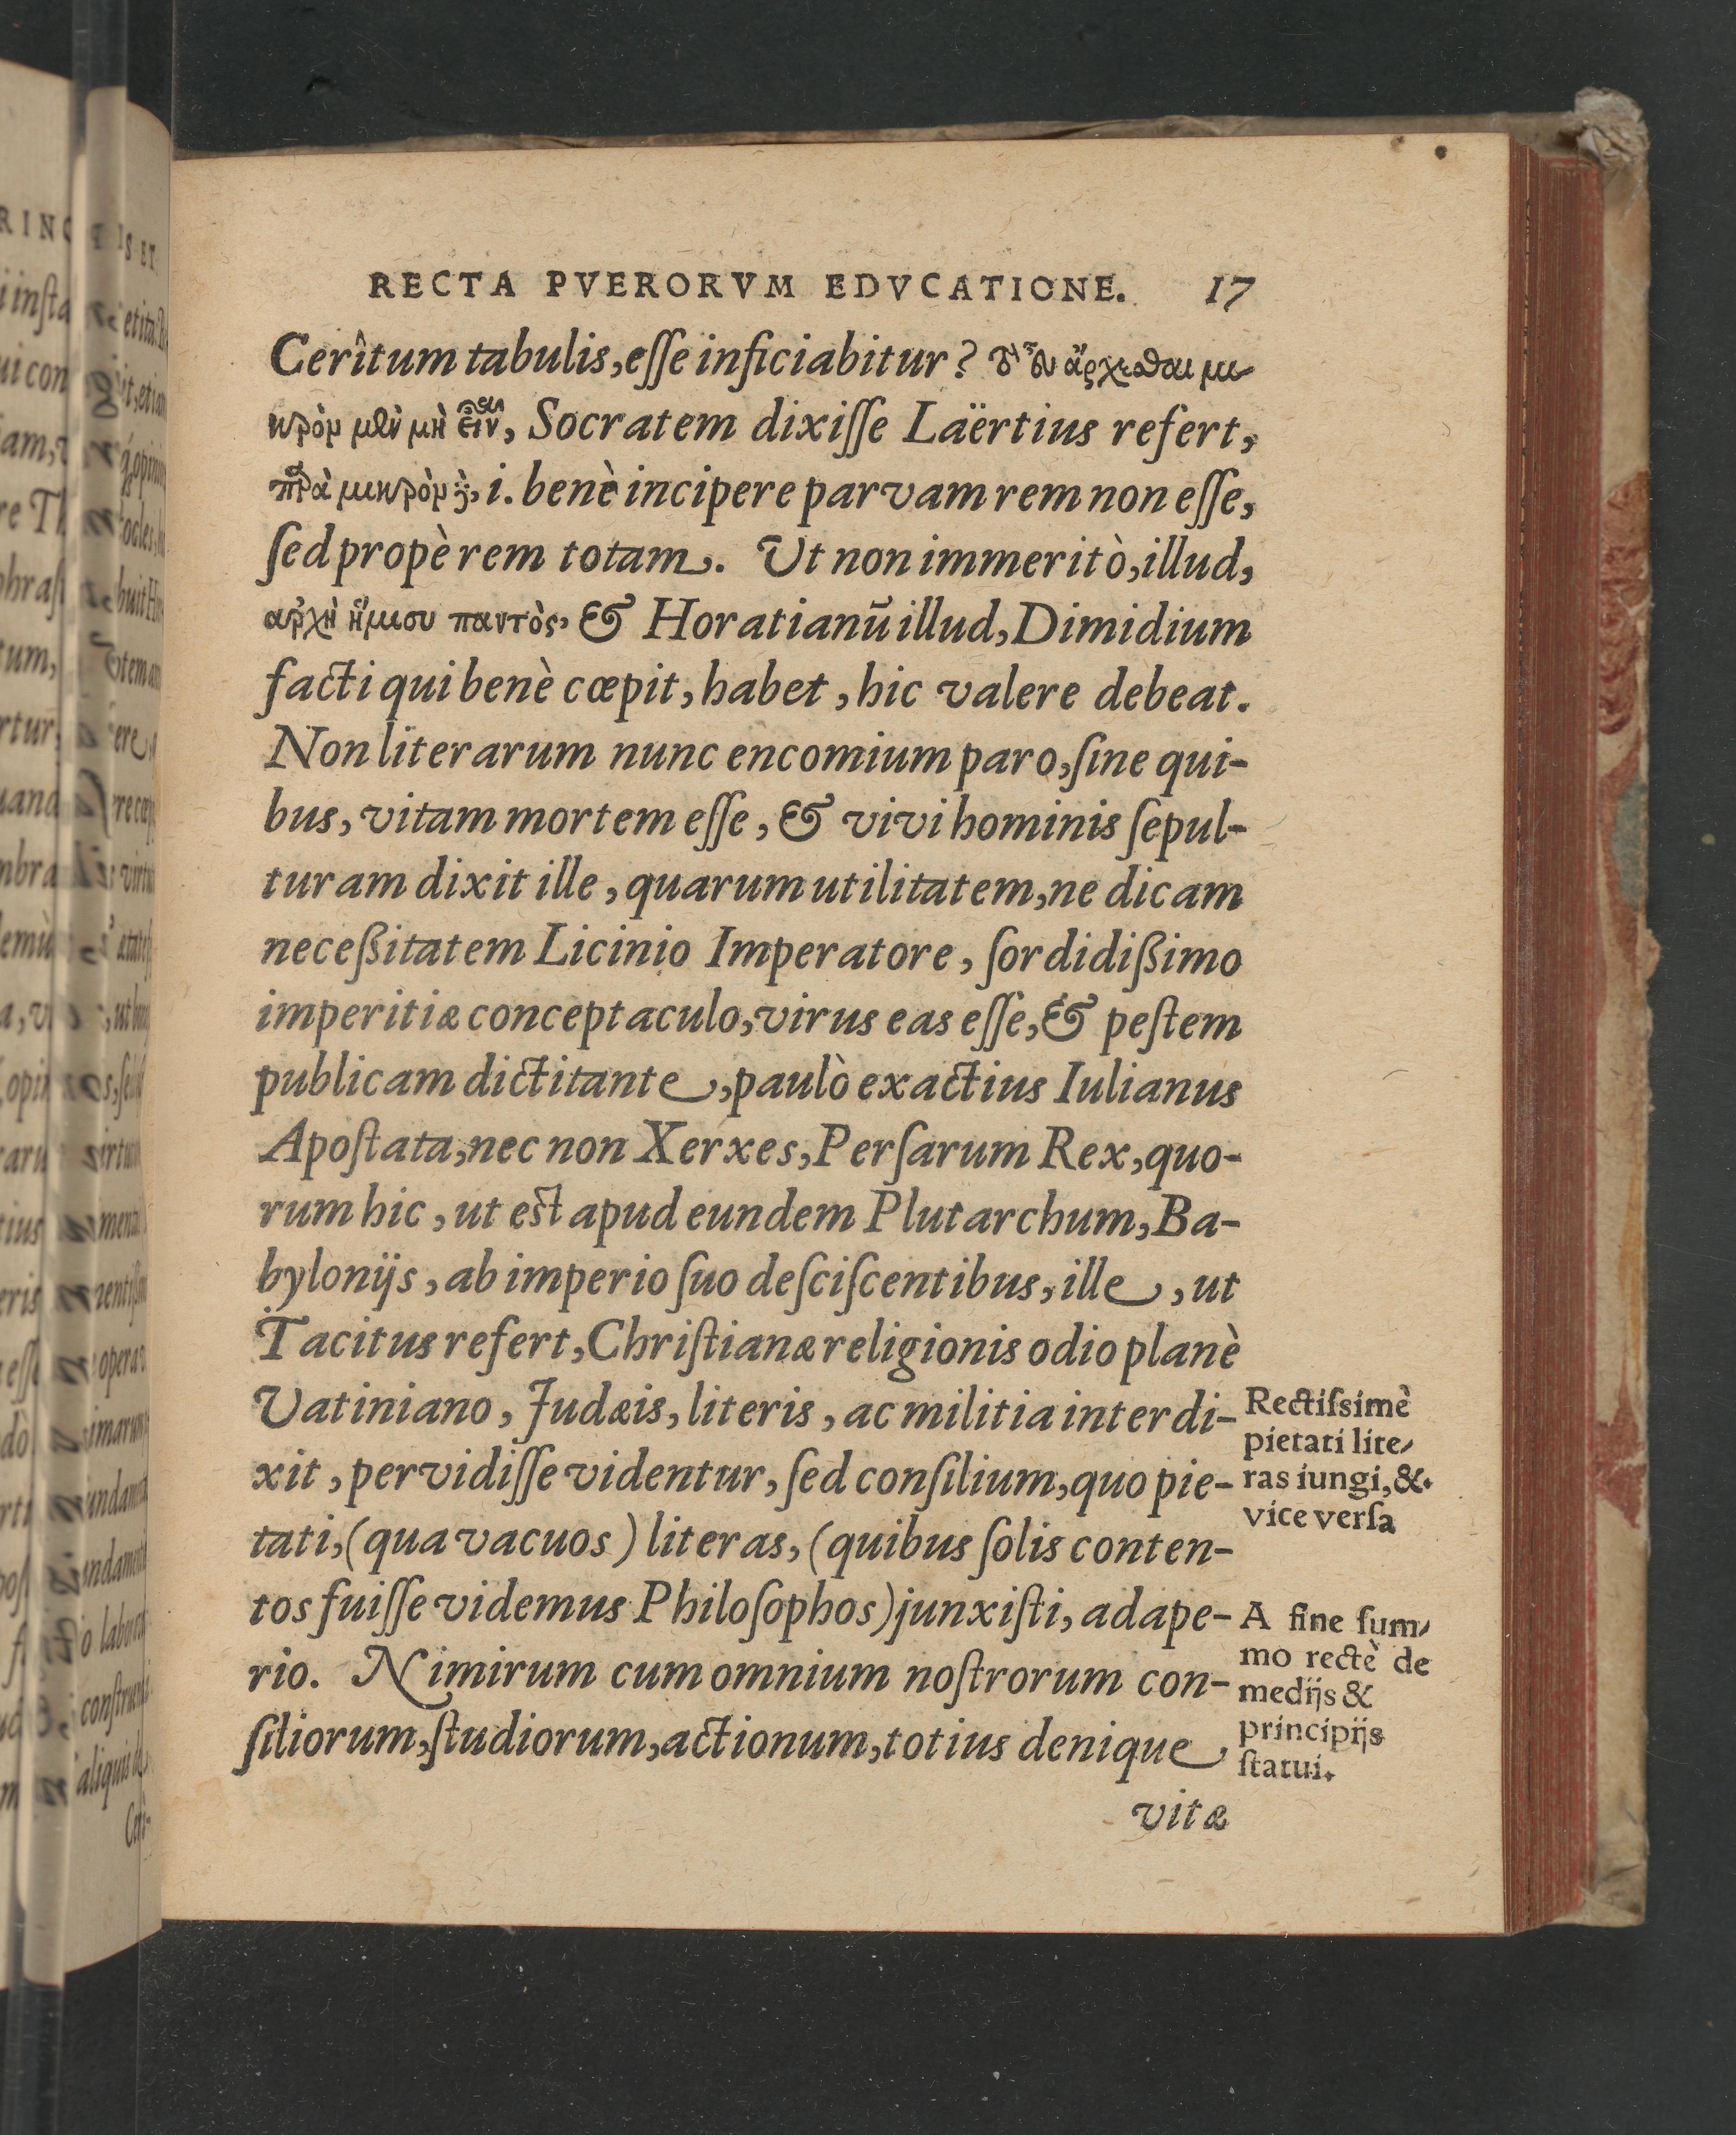 RECTA PVERORVM EDVCATIONE. 17
Cerîtum tabulis, eſſe inficiabitur? τὸ εὖ ἄρχεσθαι μι-
κρὸμ μὲν μὴ εἶναι, Socratem dixiſſe Laërtius refert,
παρὰ μικρὸμ δὲ, i. benè incipere parvam rem non eſſe,
ſed propè rem totam. Ut non immeritò, illud,
ἀρχὴ ἥμισυ παντὸς, & Horatianū illud, Dimidium
facti qui benè cœpit, habet, hic valere debeat.
Non literarum nunc encomium paro, ſine qui-
bus, vitam mortem eſſe, & vivi hominis ſepul-
turam dixit ille, quarum utilitatem, ne dicam
neceßitatem Licinio Imperatore, ſordidißimo
imperitiæ conceptaculo, virus eas eſſe, & peſtem
publicam dictitante, paulò exactius Iulianus
Apoſtata, nec non Xerxes, Perſarum Rex, quo-
rum hic, ut est apud eundem Plutarchum, Ba-
bylonijs, ab imperio ſuo deſciſcentibus, ille, ut
Tacitus refert, Chriſtianæ religionis odio planè
Vatiniano, Judæis, literis, ac militia interdi-
xit, pervidiſſe videntur, ſed conſilium, quo pie-
tati, (qua vacuos) literas, (quibus ſolis conten-
tos fuiſſe videmus Philoſophos) junxiſti, adape-
rio. Nimirum cum omnium noſtrorum con-
ſiliorum, ſtudiorum, actionum, totius denique
vitæ
Rectiſsimè
pietati lite-
ras iungi, &
vice verſa
A fine ſum-
mo rectè de
medijs &
principijs
ſtatui.